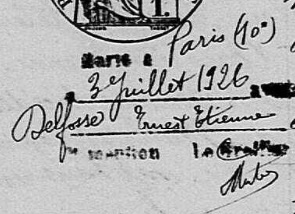 Marié à Paris (10e)
le 3 Juillet 1926 avec
Delfosse Ernest Etienne
mention Le Greffier